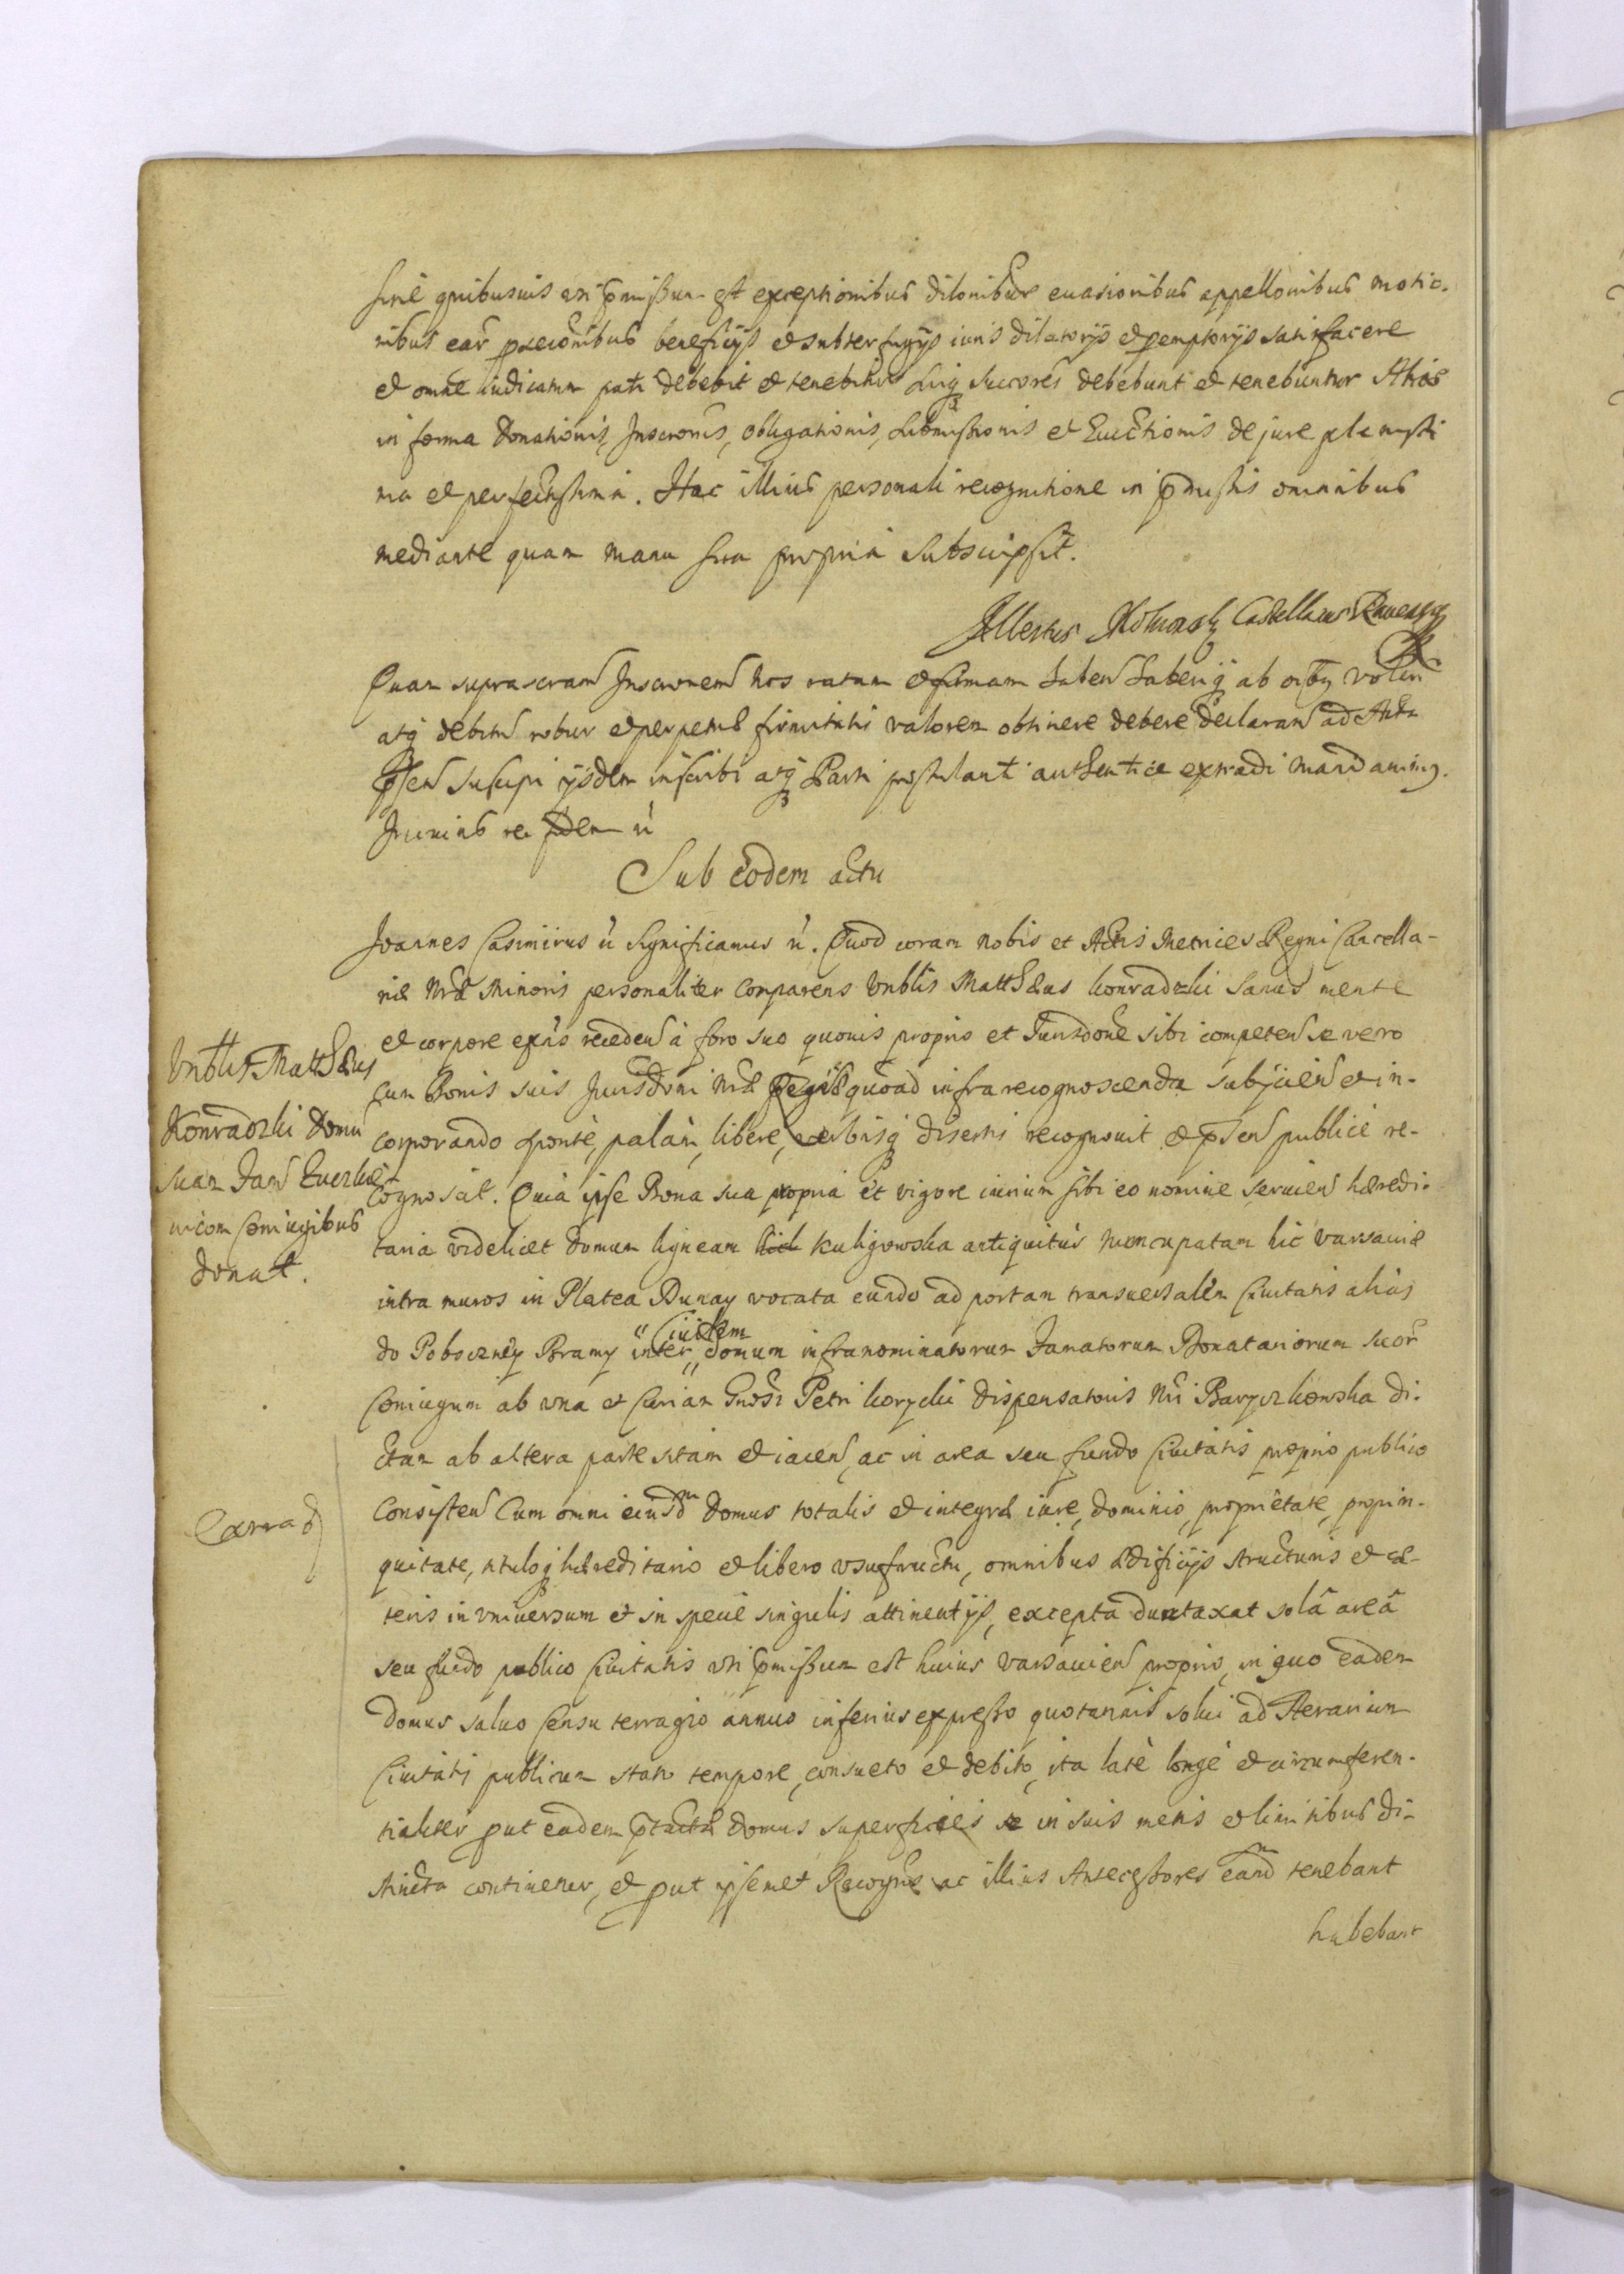 sine quibusuis uti p̄missum est exceptionibus dilōnibus euasionibus appellōnibus motio-
nibus ear̄ p̄secōnibus beneficijs et subterfugijs iuris dilatorijs et peremptorijs satisfacere
et omne iudicatum pati debebit et tenebitur suiq̨ succores debebunt et tenebuntur
in forma Donationis, Inscrōnis, obligationis, Submissionis et Euictionis de jure plenissi
ma et perfectissima. Hac illius personali recognitione in p̄missis omnibus
mediante quam manu sua propria subscripsit.
Castellanus
Quam suprascram̄ Inscrōnem nos ratam et firmam haben̄ haberiq̨ ab oībus volen̄
atq̨ debitū robur et perpetuæ firmitatis valorem obtinere debere declaran̄ ad Acta
p̄sen̄ suscipi ijsdem inscribi atq̨ Parti postulanti authentice extradi mandauimus.
In cuius rei fidem ü
Sub eodem actu
Joannes Casimirus ü Significamus ü. Quod coram nobis et Actis Metrices Regni Cancella-
riæ Nræ Minoris personaliter comparens Vnblis Matthæus Konradzki sanus mente
et corpore exn̄s receden̄ à foro suo quouis proprio et Jurisdōne sibi competen̄ se vero
cum Bonis suis Jurisdōni Nræ Regiæ quoad infra recognoscenda subijcien̄ et in-
corporando sponte, palàm, libere, verbisq̨ disertis recognouit et p̄sen̄ publicè re-
cognoscit. Quia ipse Bona sua propria et vigore iurium sibi eo nomine seruien̄ hæredi-
taria videlicet domum ligneam Kuligowska antiquitùs nuncupatam hic Varsauiæ
intra muros in Platea Dunay vocata eundo ad portam transuersalem Ciuitatis aliàs
do Poboczney Bramy inter " Ciuilem " domum infranominatorum Famatorum Donatariorum suor̄
Coniugum ab una et Curiam Gnōsi Petri Korycki Dispensatoris Nri Baryczkowska di-
ctam ab altera parte sitam et iacen̄, ac in area seu fundo Ciuitatis proprio publico
consisten̄ Cum omni eiusdm domus totalis et integræ iure, dominio, proprietate, propin-
quitate, tituloq̨ hæreditario et libero vsufructu, omnibus ædificijs structuris et cæ-
teris in vniuersum et in specie singulis attinentijs, exceptâ duntaxat solâ areâ
seu fundo publico Ciuitatis uti p̄missum est huius Varsauien̄ proprio, in quo eadem
domus saluo Censu terragio annuo inferius expresso quotannis solui ad Aerarium
Ciuitatis publicum stato tempore, consueto et debito, ita latè longè et circumferen-
tialiter put eadem p̄tacta domus superficies se in suis metis et limitibus di-
stincta continetur, et put ipsemet Recogn̄s ac illius Antecessores eand̄m tenebant
habebant
Vnblis Matthæus
Konradzki Domū
suam Fam̄
Coniugibus
donat.